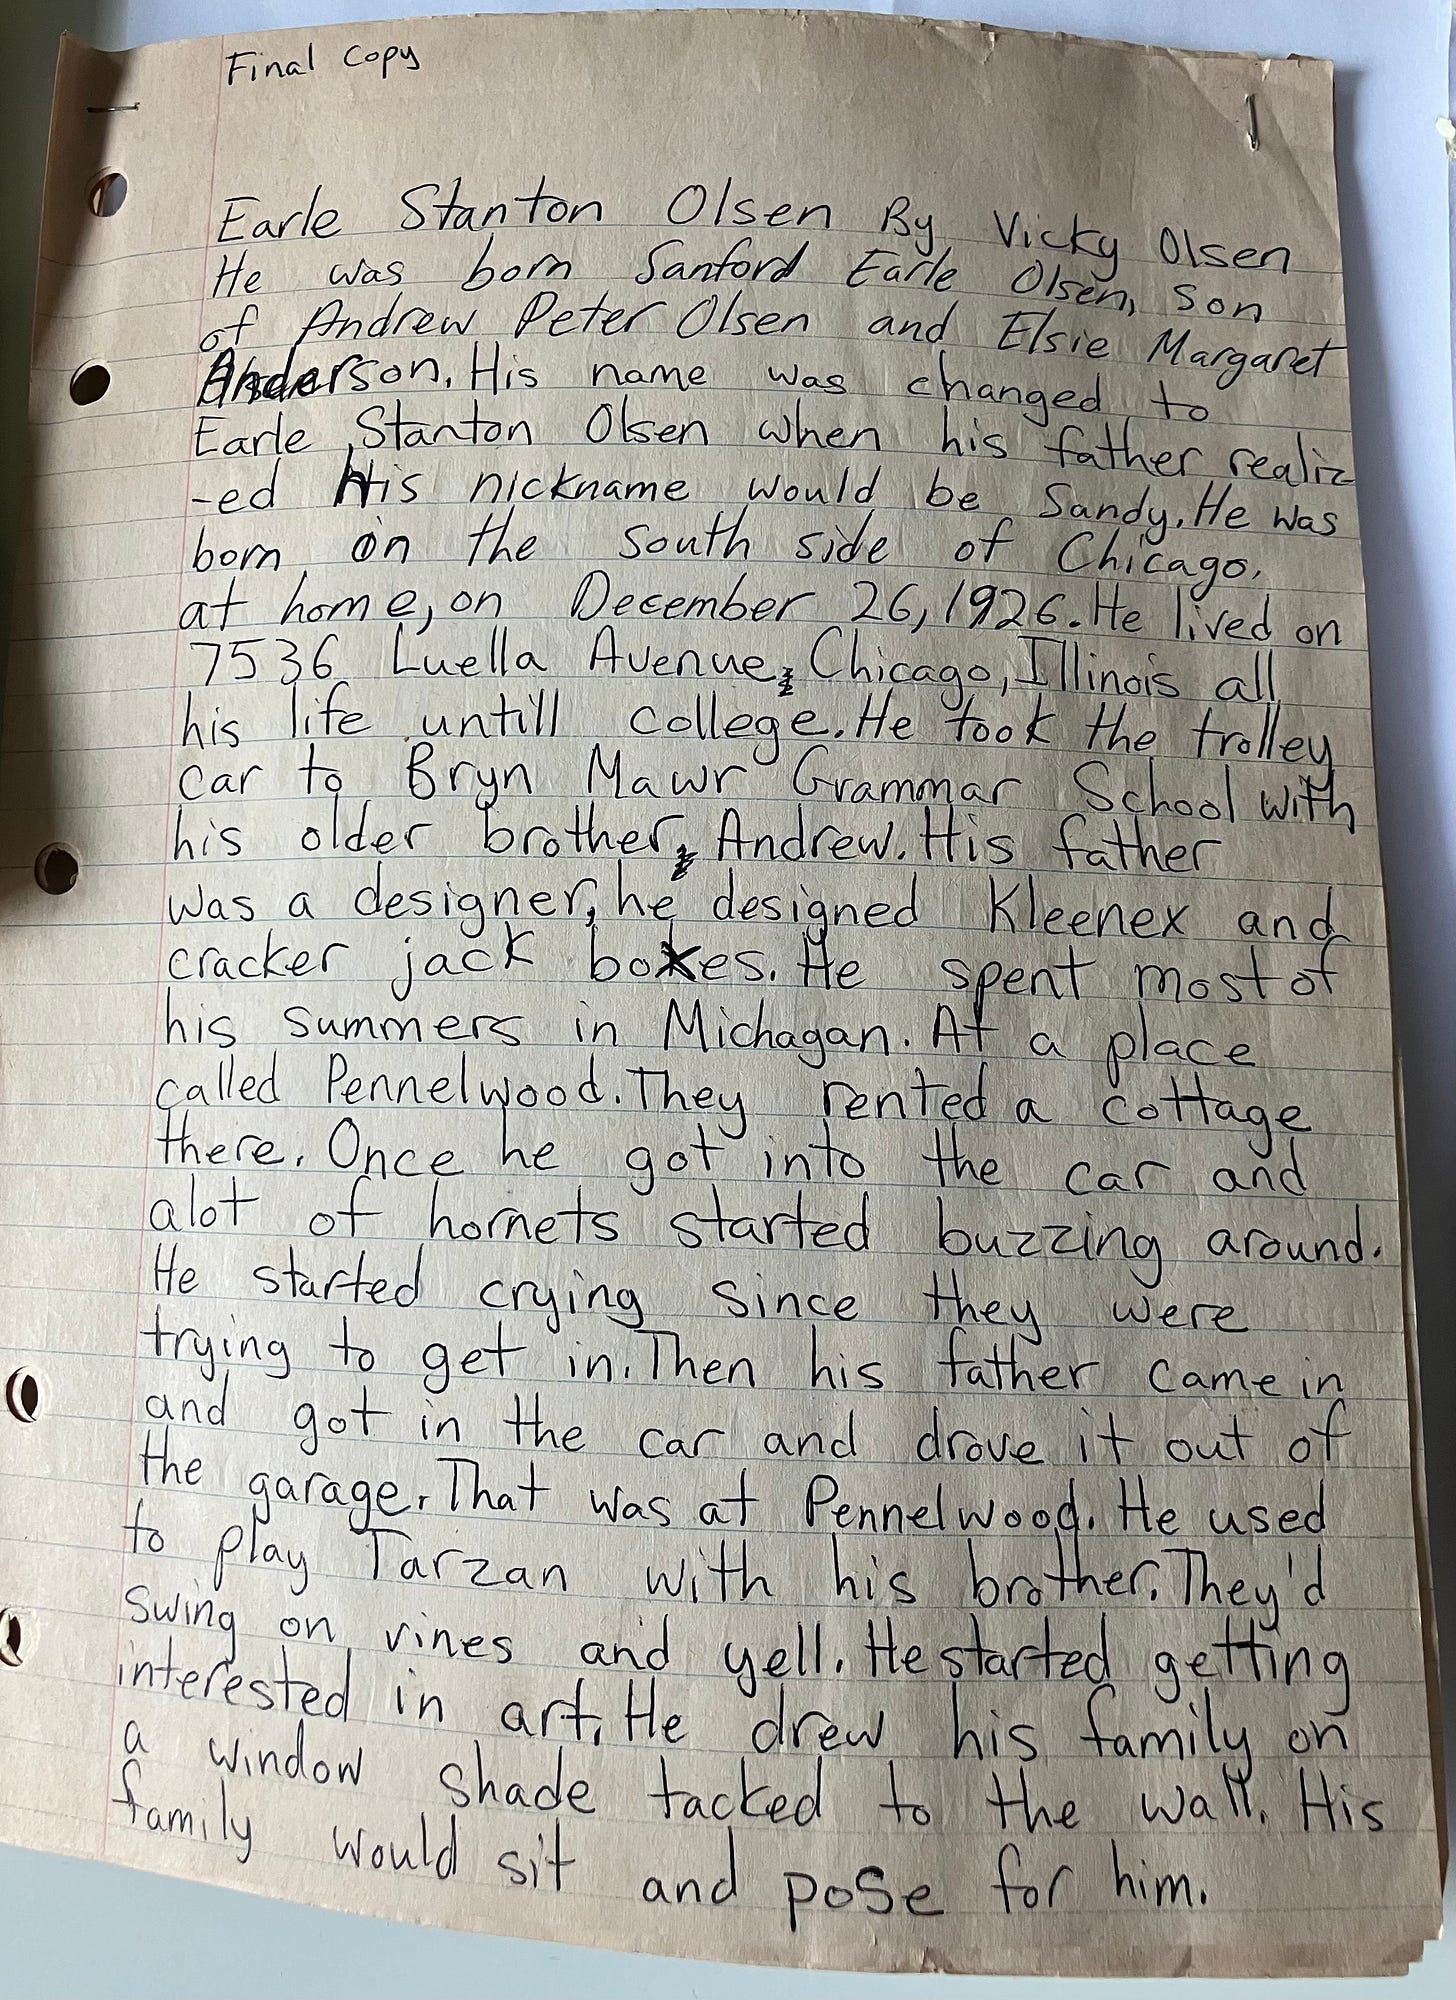 Final Copy
Earle Stanton Olsen By Vicky Olsen
He was born Sanford Earle Olsen, son
of Andrew Peter Olsen and Elsie Margaret
Anderson. His name was changed to
Earle Stanton Olsen when his father realiz
-ed His nickname would be Sandy. He was
born on the south side of Chicago,
at home, on December 26, 1926. He lived on
7536 Luella Avenue, Chicago, Illinois all
his life untill college. He took the trolley
car to Bryn Mawr Grammar School with
his older brother, Andrew. His father
was a designer, he designed Kleenex and
cracker jack boxes. He spent most of
his summers in Michagan. At a place
called Pennelwood. They rented a cottage
there. Once he got into the car and
alot of hornets started buzzing around.
He started crying since they were
trying to get in. Then his father came in
and got in the car and drove it out of
the garage. That was at Pennelwood. He used
to play Tarzan with his brother. They'd
swing on vines and yell. He started getting
interested in art. He drew his family on
a window shade tacked to the wall. His
family would sit and pose for him.